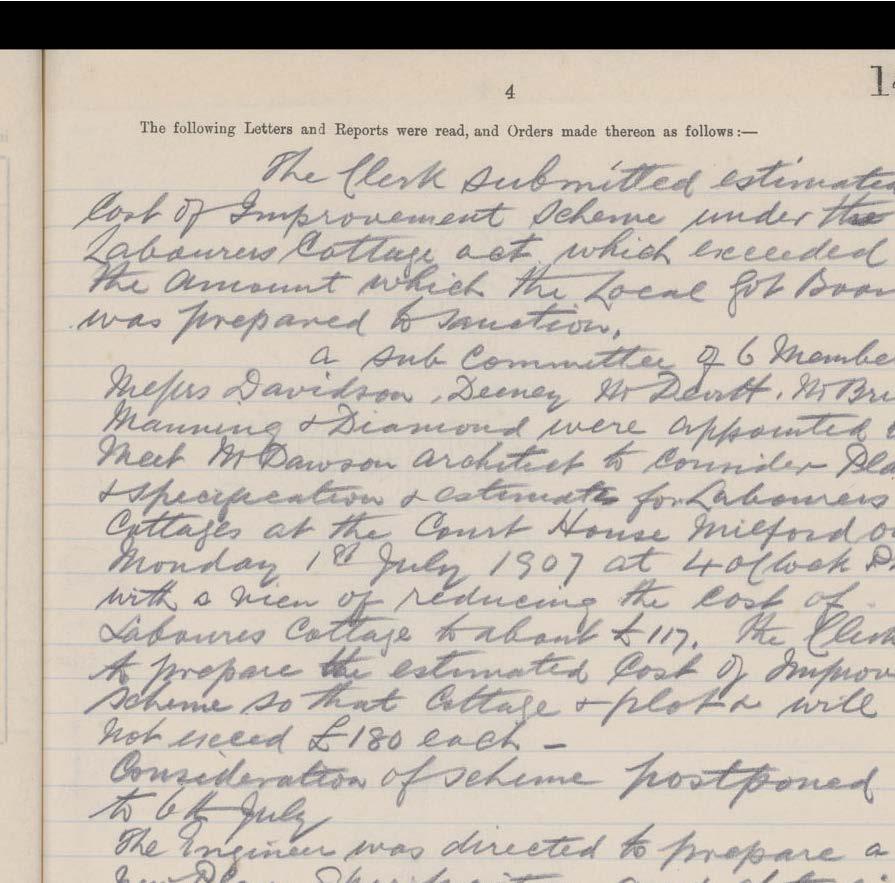 4
14
The following Letters and Reports were read, and Orders made thereon as follows:—
The Clerk submitted estimated
Cost of Improvement Scheme under the
Labourers Cottage act which exceeded
the amount which the Local Gvt Boar
was prepared to sanction.
a sub Committee of 6 Membe
Messrs Davidson, Deeney McDevitt, McBri
Manning & Diamond were appointed
Meet Mr Dawson architect to consider Pla
& specification & estimate for Labourers
Cottages at the Court House Milford o
Monday 1st July 1907 at 4 oClock P.
with a view of reducing the cost of
Laboures Cottage to about £117. The Clerk
to prepare the estimated Cost of Improv
scheme so that Cottage & plot will
not exceed £180 each –
Consideration of scheme postponed
to 6th July
The Engineer was directed to prepare a
new Plan